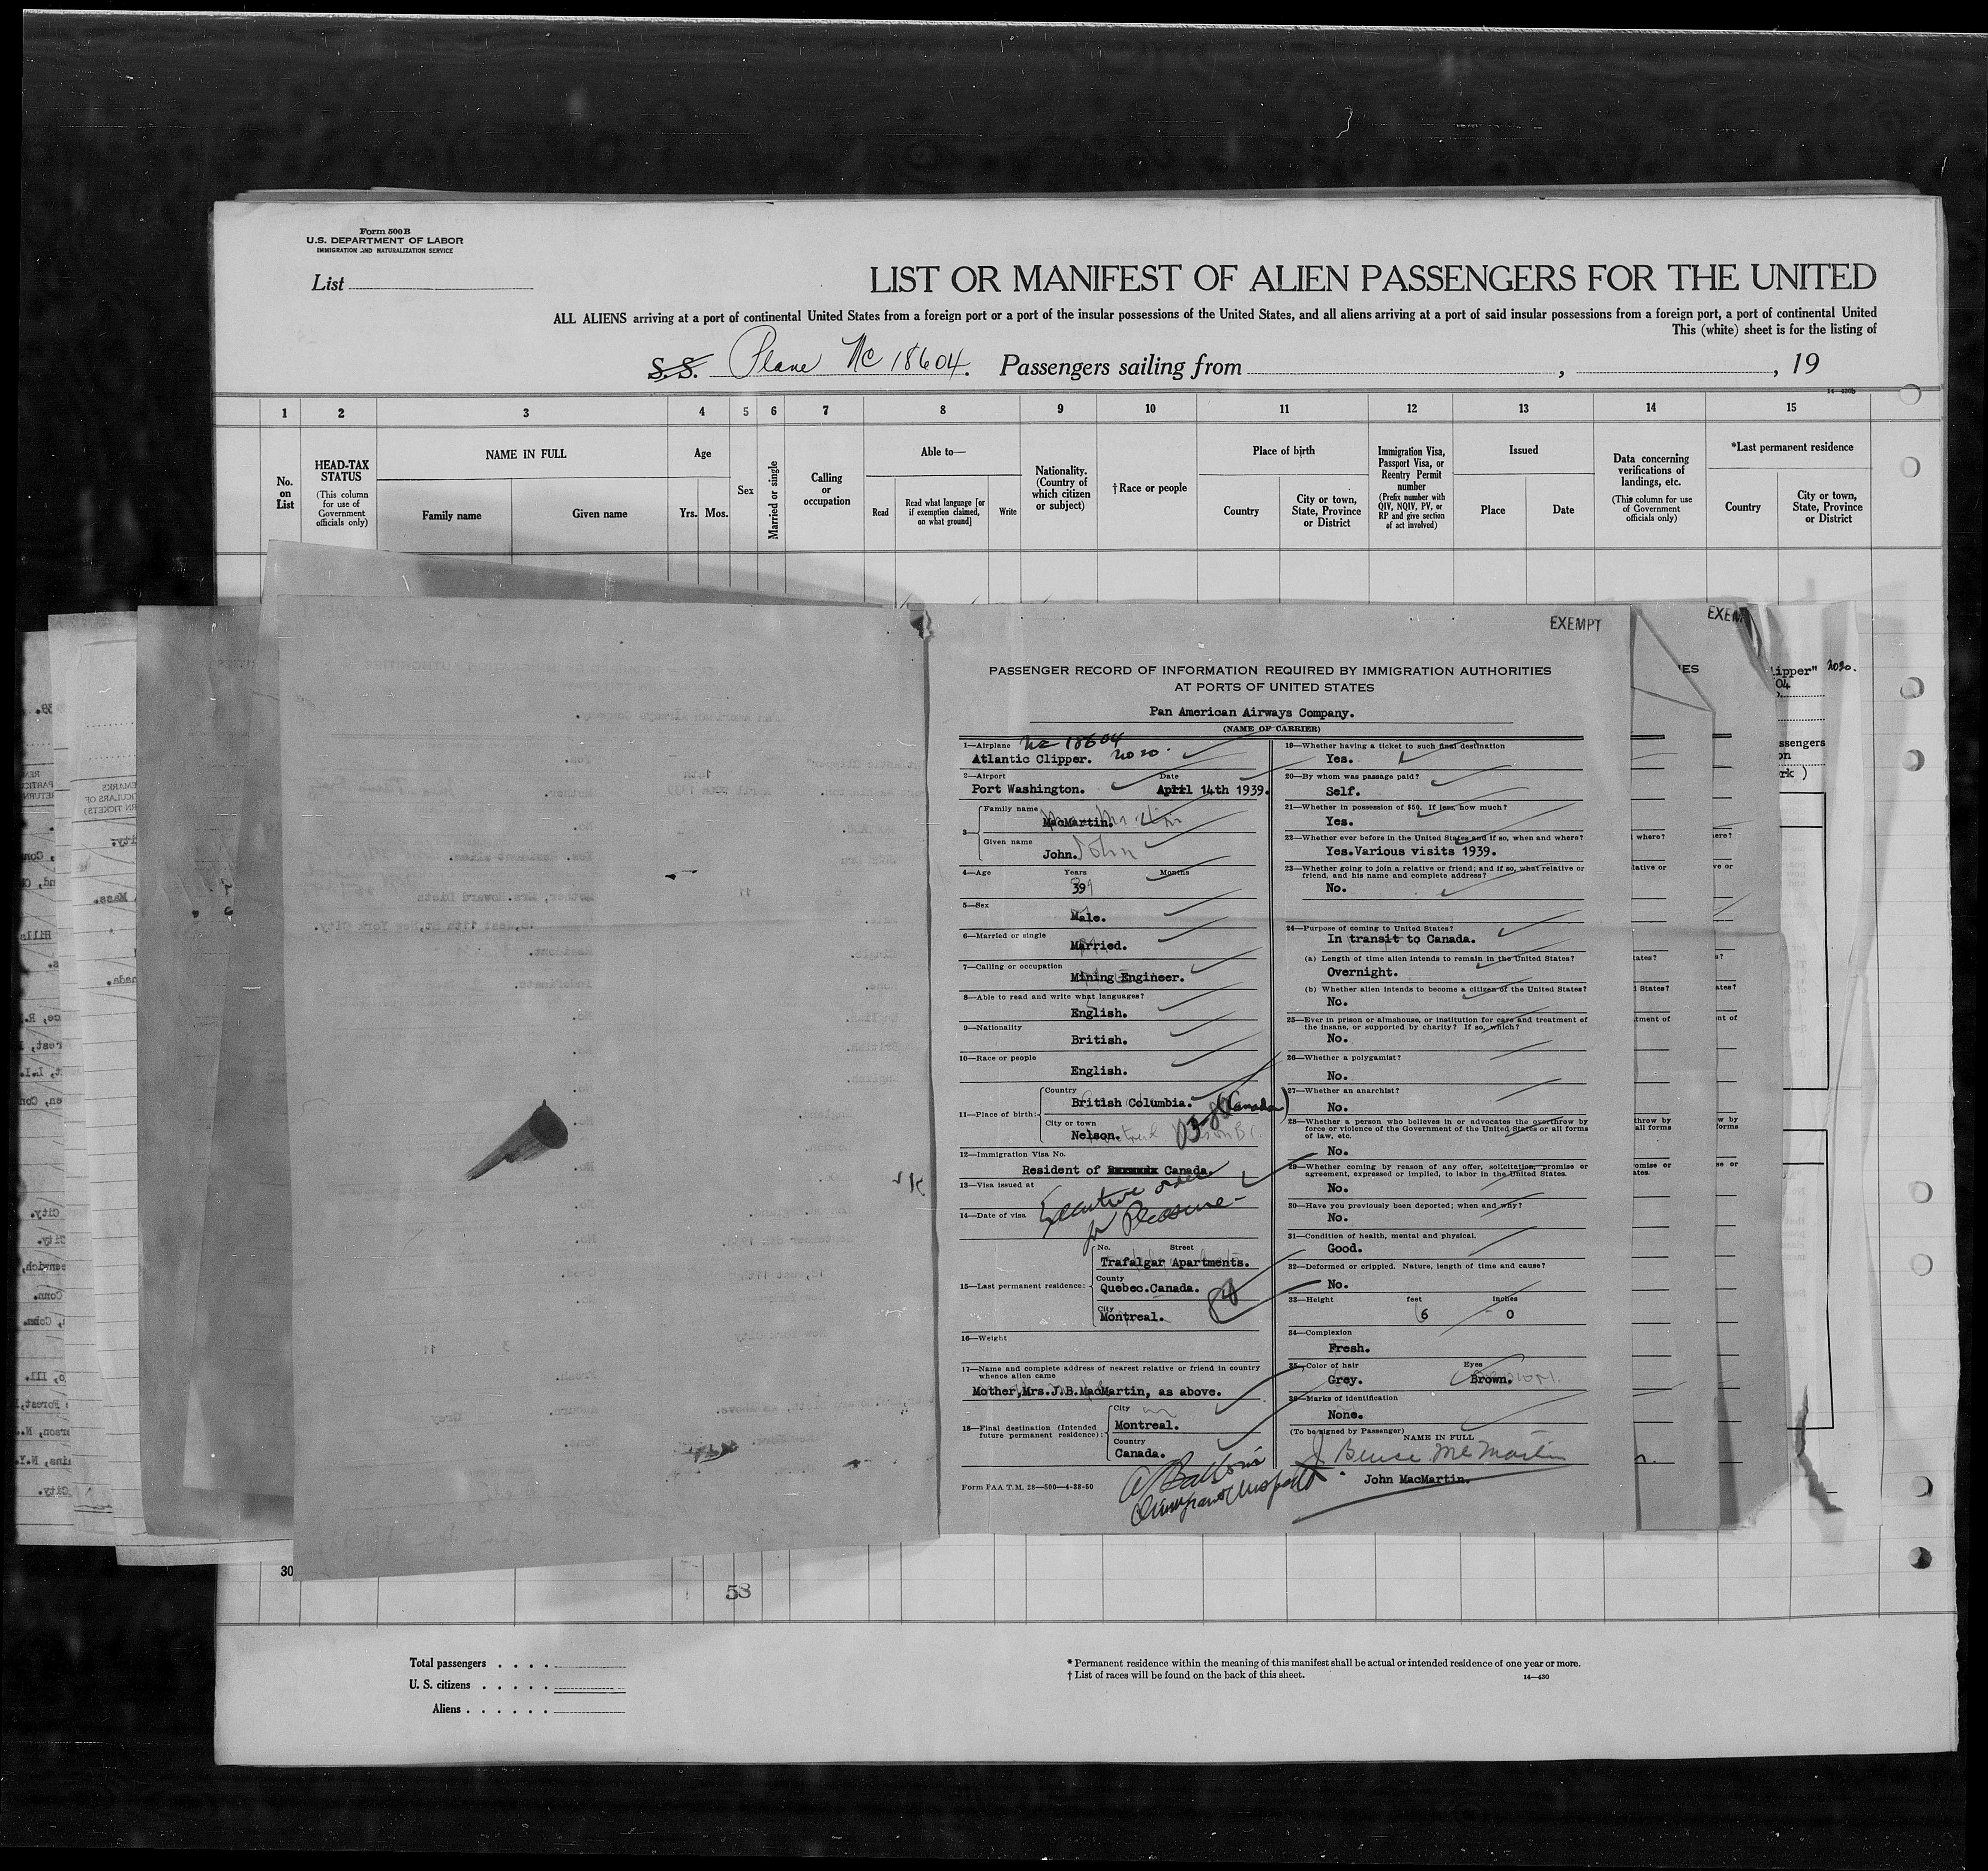 Form 500 B
U.S. DEPARTMENT OF LABOR
IMMIGRATION AND NATURALIZATION SERVICE
List
LIST OR MANIFEST OF ALIEN PASSENGERS FOR THE UNITED
ALL ALIENS arriving at a port of continental United States from a foreign port or a port of the insular possessions of the United States, and all aliens arriving at a port of said insular possessions from a foreign port, a port of continental United
This (white) sheet is for the listing of
S.S. Plane NC 18604. Passengers sailing from , , 19
14—430b
1 2 3 4 5 6 7 8 9 10 11 12 13 14 15
No. on List
HEAD-TAX STATUS
(This column for use of Government officials only)
NAME IN FULL
Family name Given name
Age
Yrs. Mos.
Sex
Married or single
Calling or occupation
Able to—
Read
Read what language [or if exemption claimed, on what ground]
Write
Nationality. (Country of which citizen or subject)
†Race or people
Place of birth
Country
City or town, State, Province or District
Immigration Visa, Passport Visa, or Reentry Permit number
(Prefix number with QIV, NQIV, PV, or RP and give section of act involved)
Issued
Place Date
Data concerning verifications of landings, etc.
(This column for use of Government officials only)
*Last permanent residence
Country
City or town, State, Province or District
EXEMPT
EXEM
PASSENGER RECORD OF INFORMATION REQUIRED BY IMMIGRATION AUTHORITIES
AT PORTS OF UNITED STATES
Pan American Airways Company.
(NAME OF CARRIER)
1—Airplane NC 18604
Atlantic Clipper. 2020.
2—Airport Date
Port Washington. April 14th 1939.
3— Family name
MacMartin.
Given name
John. John
4—Age Years Months
39
5—Sex
Male.
6—Married or single
Married.
7—Calling or occupation
Mining Engineer.
8—Able to read and write what languages?
English.
9—Nationality
British.
10—Race or people
English.
11—Place of birth: Country
British Columbia. (Canada)
City or town
Nelson.
12—Immigration Visa No.
Resident of Canada.
13—Visa issued at Executive order
14—Date of visa for Pleasure—
15—Last permanent residence: No. Street
Trafalgar Apartments.
County
Quebec.Canada.
City
Montreal.
16—Weight
17—Name and complete address of nearest relative or friend in country whence alien came
Mother,Mrs.J.B.MacMartin, as above.
18—Final destination (Intended future permanent residence): City
Montreal.
Country
Canada.
Form PAA T.M. 28—500—4-38-50
19—Whether having a ticket to such final destination
Yes.
20—By whom was passage paid?
Self.
21—Whether in possession of $50. If less, how much?
Yes.
22—Whether ever before in the United States and if so, when and where?
Yes.Various visits 1939.
23—Whether going to join a relative or friend; and if so, what relative or friend, and his name and complete address?
No.
24—Purpose of coming to United States?
In transit to Canada.
(a) Length of time alien intends to remain in the United States?
Overnight.
(b) Whether alien intends to become a citizen of the United States?
No.
25—Ever in prison or almshouse, or institution for care and treatment of the insane, or supported by charity? If so, which?
No.
26—Whether a polygamist?
No.
27—Whether an anarchist?
No.
28—Whether a person who believes in or advocates the overthrow by force or violence of the Government of the United States or all forms of law, etc.
No.
29—Whether coming by reason of any offer, solicitation, promise or agreement, expressed or implied, to labor in the United States.
No.
30—Have you previously been deported; when and why?
No.
31—Condition of health, mental and physical.
Good.
32—Deformed or crippled. Nature, length of time and cause?
No.
33—Height feet inches
6 0
34—Complexion
Fresh.
35—Color of hair Eyes
Grey. Brown.
36—Marks of identification
None.
(To be signed by Passenger)
NAME IN FULL
J. Bruce McMartin
John MacMartin.
30
58
Total passengers . . . .
U. S. citizens . . . . .
Aliens . . . . . .
* Permanent residence within the meaning of this manifest shall be actual or intended residence of one year or more.
† List of races will be found on the back of this sheet.
14—430